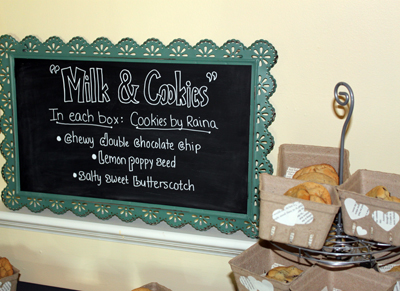 "Milk & Cookies"
In each box: Cookies by Raina
• Chewy Double Chocolate Chip
• Lemon Poppy Seed
• Salty Sweet Butterscotch